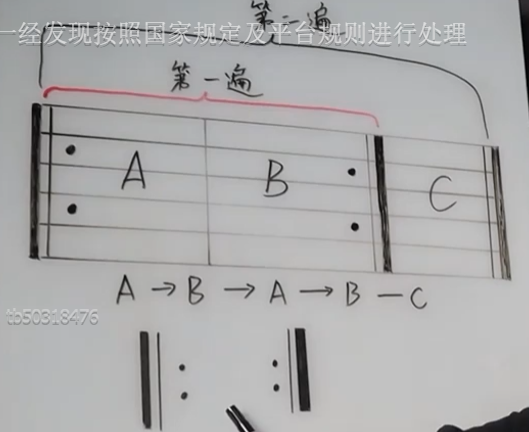 第二遍
一经发现按照国家规定及平台规则进行处理
第一遍
A B C
A → B → A → B — C
tb50318476